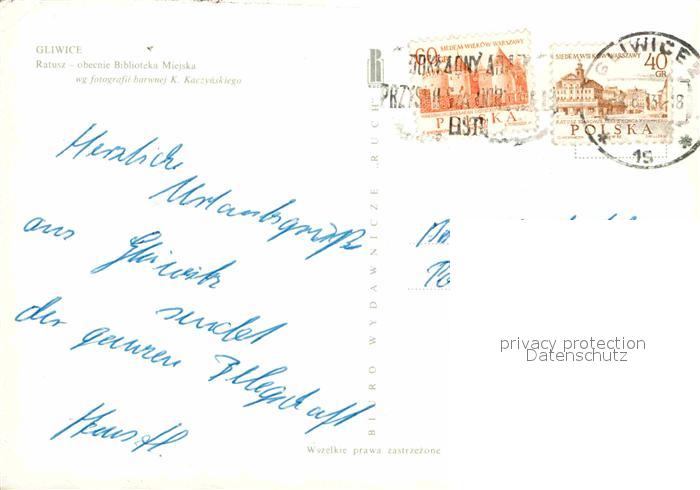 GLIWICE
Ratusz – obecnie Biblioteka Miejska
wg fotografii barwnej K. Kaczyńskiego
Herzliche
Urlaubsgrüße
aus Gleiwitz
sendet
der ganzen Belegschaft
BIURO WYDAWNICZE „RUCH"
Wszelkie prawa zastrzeżone
60 GR
SIEDEM WIEKÓW WARSZAWY
POLSKA
40 GR
SIEDEM WIEKÓW WARSZAWY
POLSKA
DOKŁADNY ADRES
LISTU
GLIWICE
15
privacy protection
Datenschutz